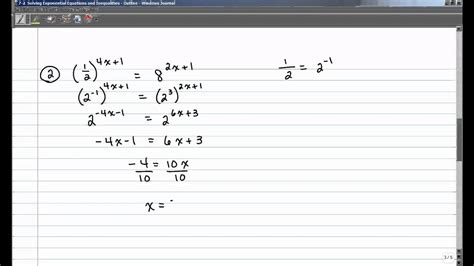 7-2 Solving Exponential Equations and Inequalities - Outline - Windows Journal
② (1/2)^(4x+1) = 8^(2x+1)
1/2 = 2^(-1)
(2^(-1))^(4x+1) = (2^3)^(2x+1)
2^(-4x-1) = 2^(6x+3)
-4x-1 = 6x+3
-4/10 = 10x/10
x = -
3/5